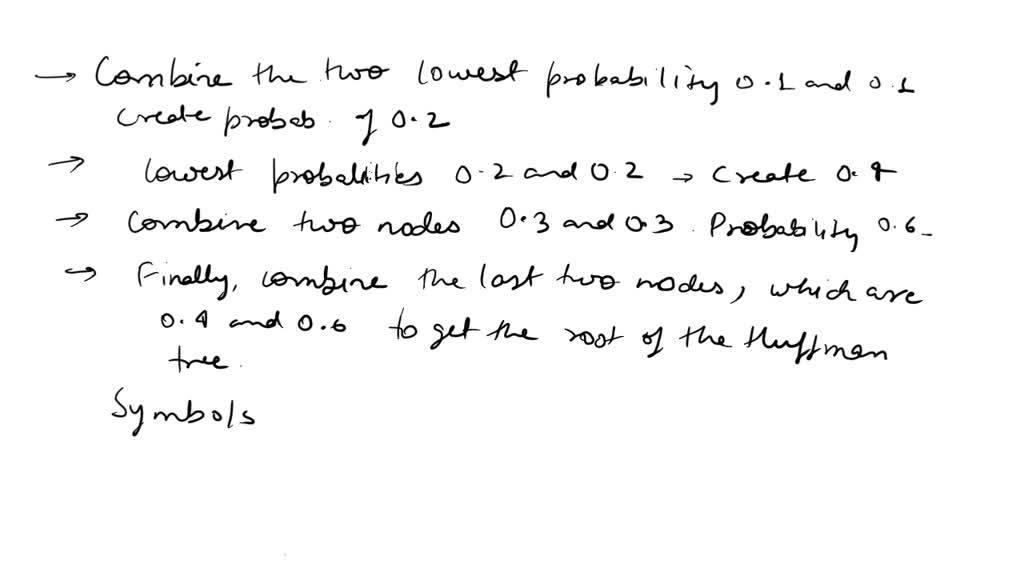 → Combine the two lowest probability 0.1 and 0.1
create probab. of 0.2
→ lowest probabilities 0.2 and 0.2 → create 0.4
→ combine two nodes 0.3 and 0.3. Probability 0.6-
→ Finally, combine the last two nodes, which are
0.4 and 0.6 to get the root of the Huffman
tree.
Symbols